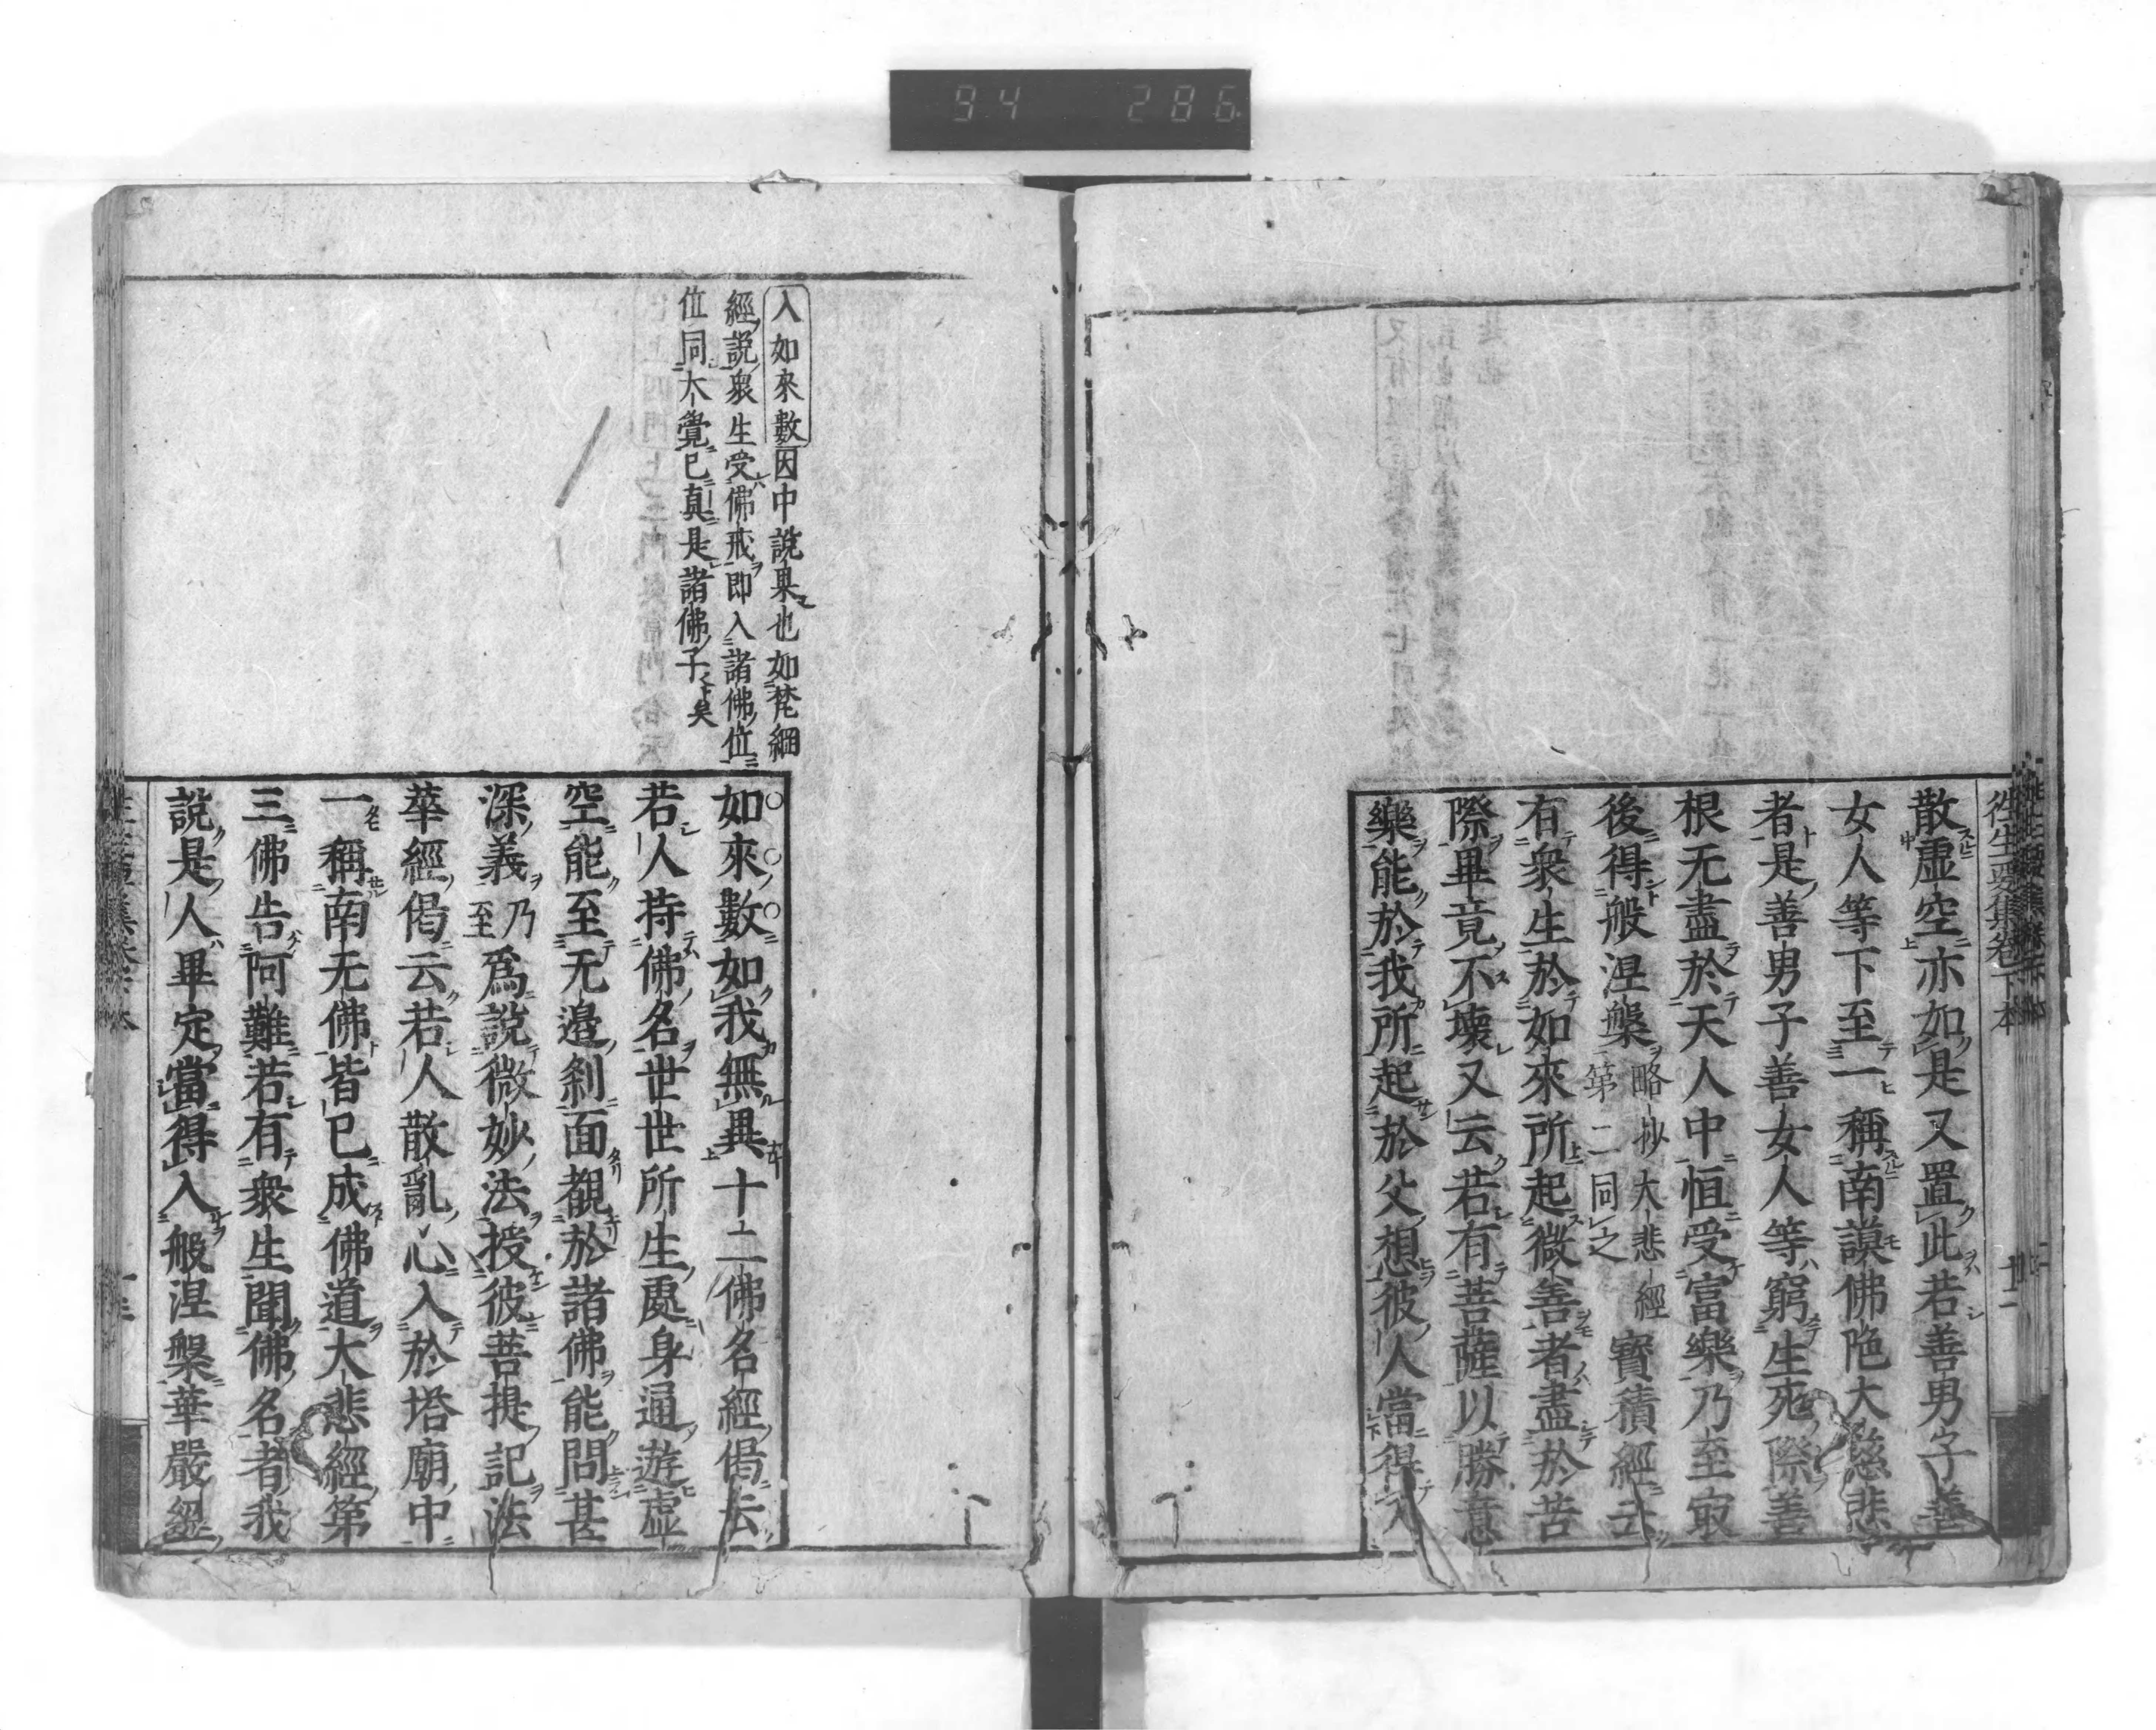 94 286
往生要集卷下本 十二
散虛空亦如是又置此若善男子善
女人等下至一稱南謨佛陁大慈悲
者是善男子善女人等窮生死際善
根无盡於天人中恒受富樂乃至㝡
後得般涅槃略抄大悲經第二同之寶積經云
有衆生於如來所起微善者盡於苦
際畢竟不壞又云若有菩薩以勝意
樂能於我所起於父想彼人當得入
入如來數因中說果也如梵網
經說衆生受佛戒即入諸佛位
位同大覺已真是諸佛子矣
如來數如我無異十二佛名經偈云
若人持佛名世世所生處身通遊虛
空能至无邊刹面覩於諸佛能問甚
深義乃至爲說微妙法授彼菩提記法
華經偈云若人散亂心入於塔廟中
一稱南无佛皆已成佛道大悲經第
三佛告阿難若有衆生聞佛名者我
說是人畢定當得入般涅槃華嚴經